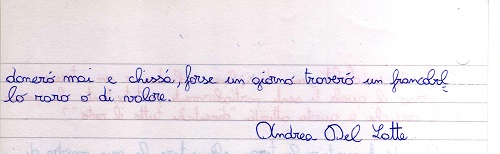 donerò mai e chissà, forse un giorno troverò un francobol=
lo raro o di valore.
Andrea Del Latte